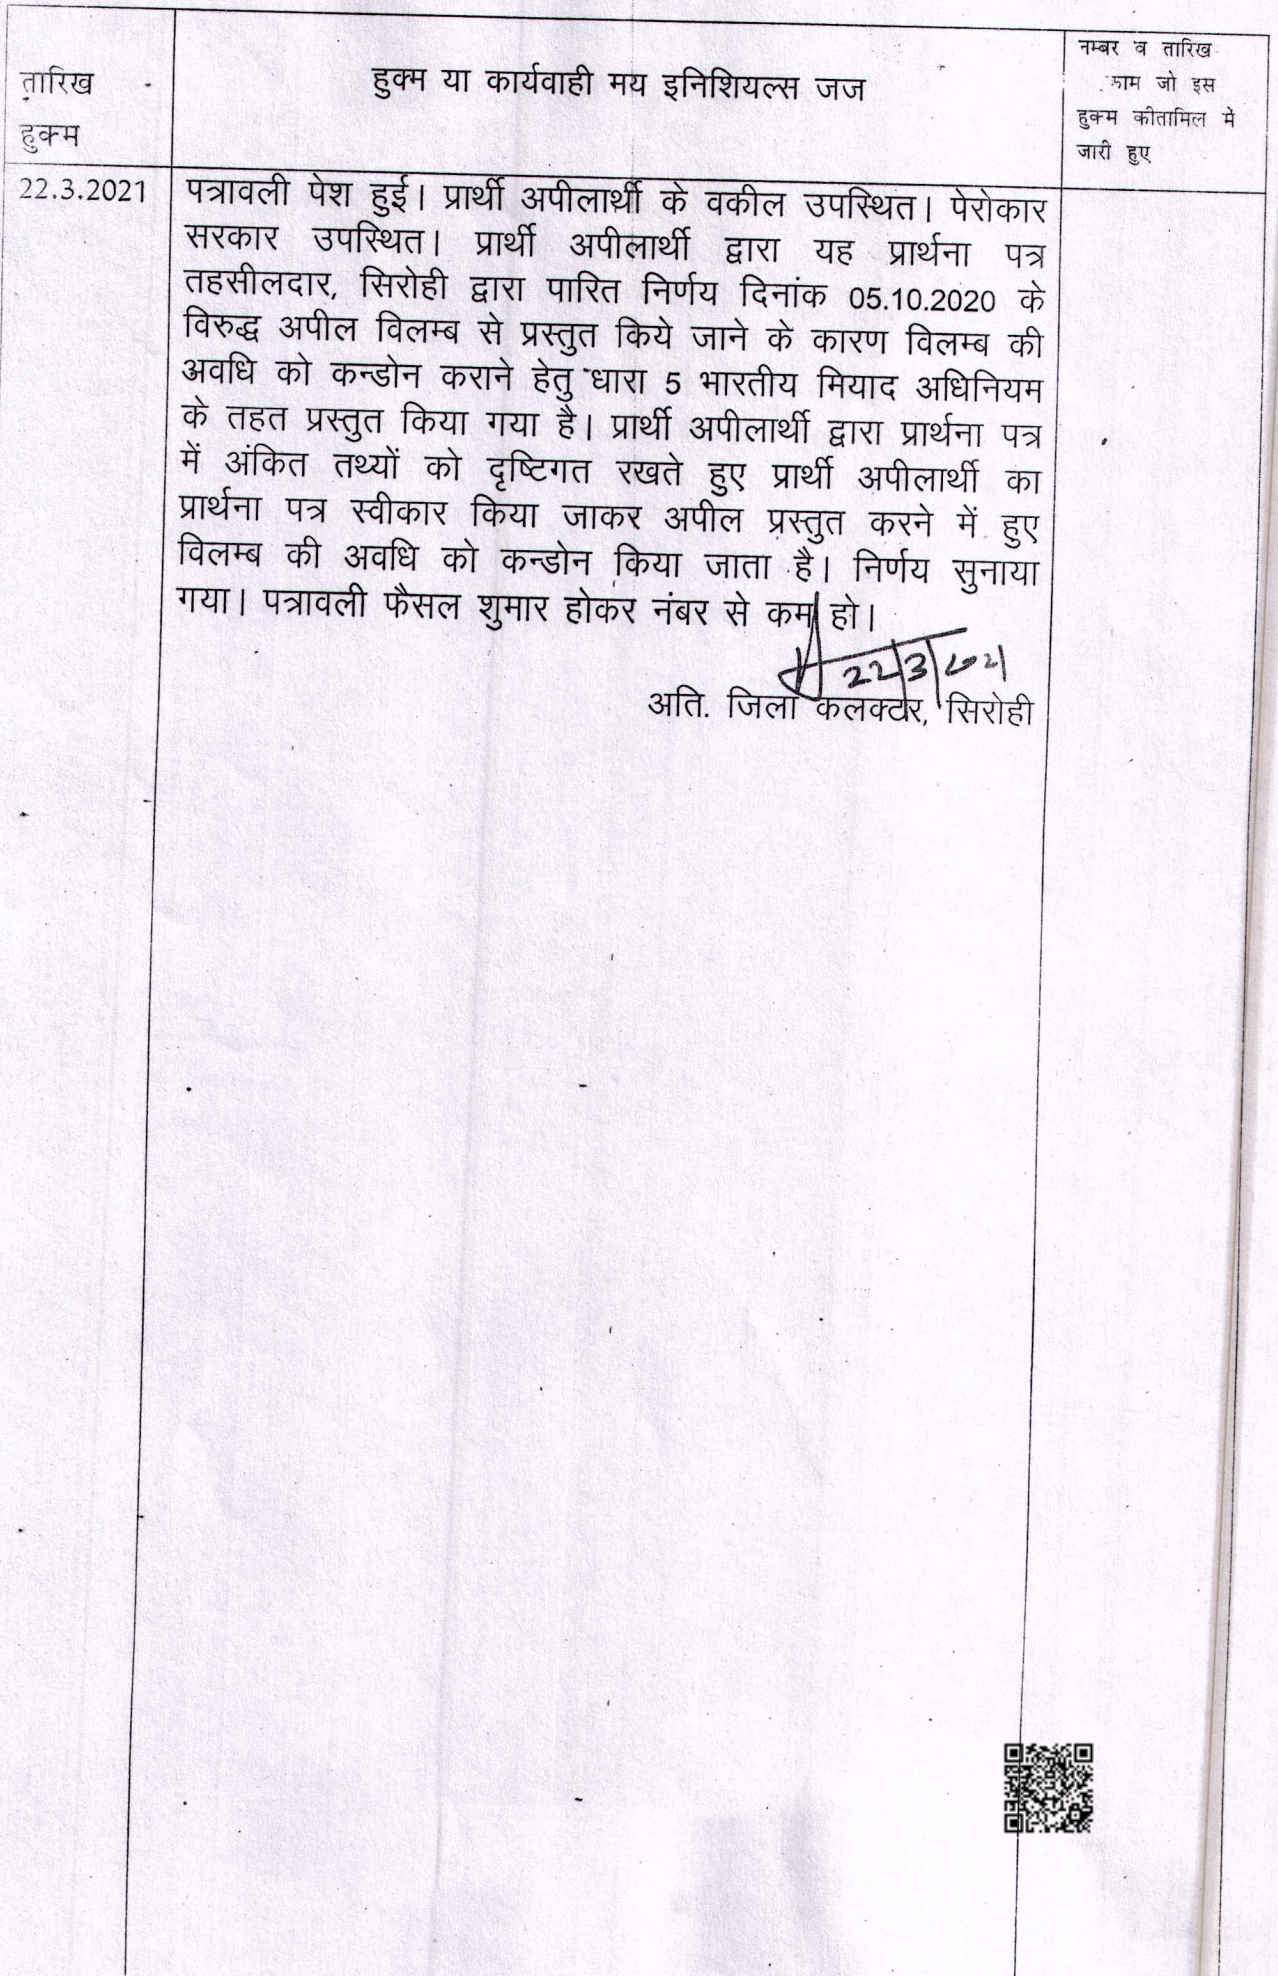 तारिख
हुक्म
हुक्म या कार्यवाही मय इनिशियल्स जज
नम्बर व तारिख
काम जो इस
हुक्म कीतामिल में
जारी हुए
22.3.2021
पत्रावली पेश हुई। प्रार्थी अपीलार्थी के वकील उपस्थित। पेरोकार
सरकार उपस्थित। प्रार्थी अपीलार्थी द्वारा यह प्रार्थना पत्र
तहसीलदार, सिरोही द्वारा पारित निर्णय दिनांक 05.10.2020 के
विरुद्ध अपील विलम्ब से प्रस्तुत किये जाने के कारण विलम्ब की
अवधि को कन्डोन कराने हेतु धारा 5 भारतीय मियाद अधिनियम
के तहत प्रस्तुत किया गया है। प्रार्थी अपीलार्थी द्वारा प्रार्थना पत्र
में अंकित तथ्यों को दृष्टिगत रखते हुए प्रार्थी अपीलार्थी का
प्रार्थना पत्र स्वीकार किया जाकर अपील प्रस्तुत करने में हुए
विलम्ब की अवधि को कन्डोन किया जाता है। निर्णय सुनाया
गया। पत्रावली फैसल शुमार होकर नंबर से कम हो।
22/3/2021
अति. जिला कलक्टर, सिरोही